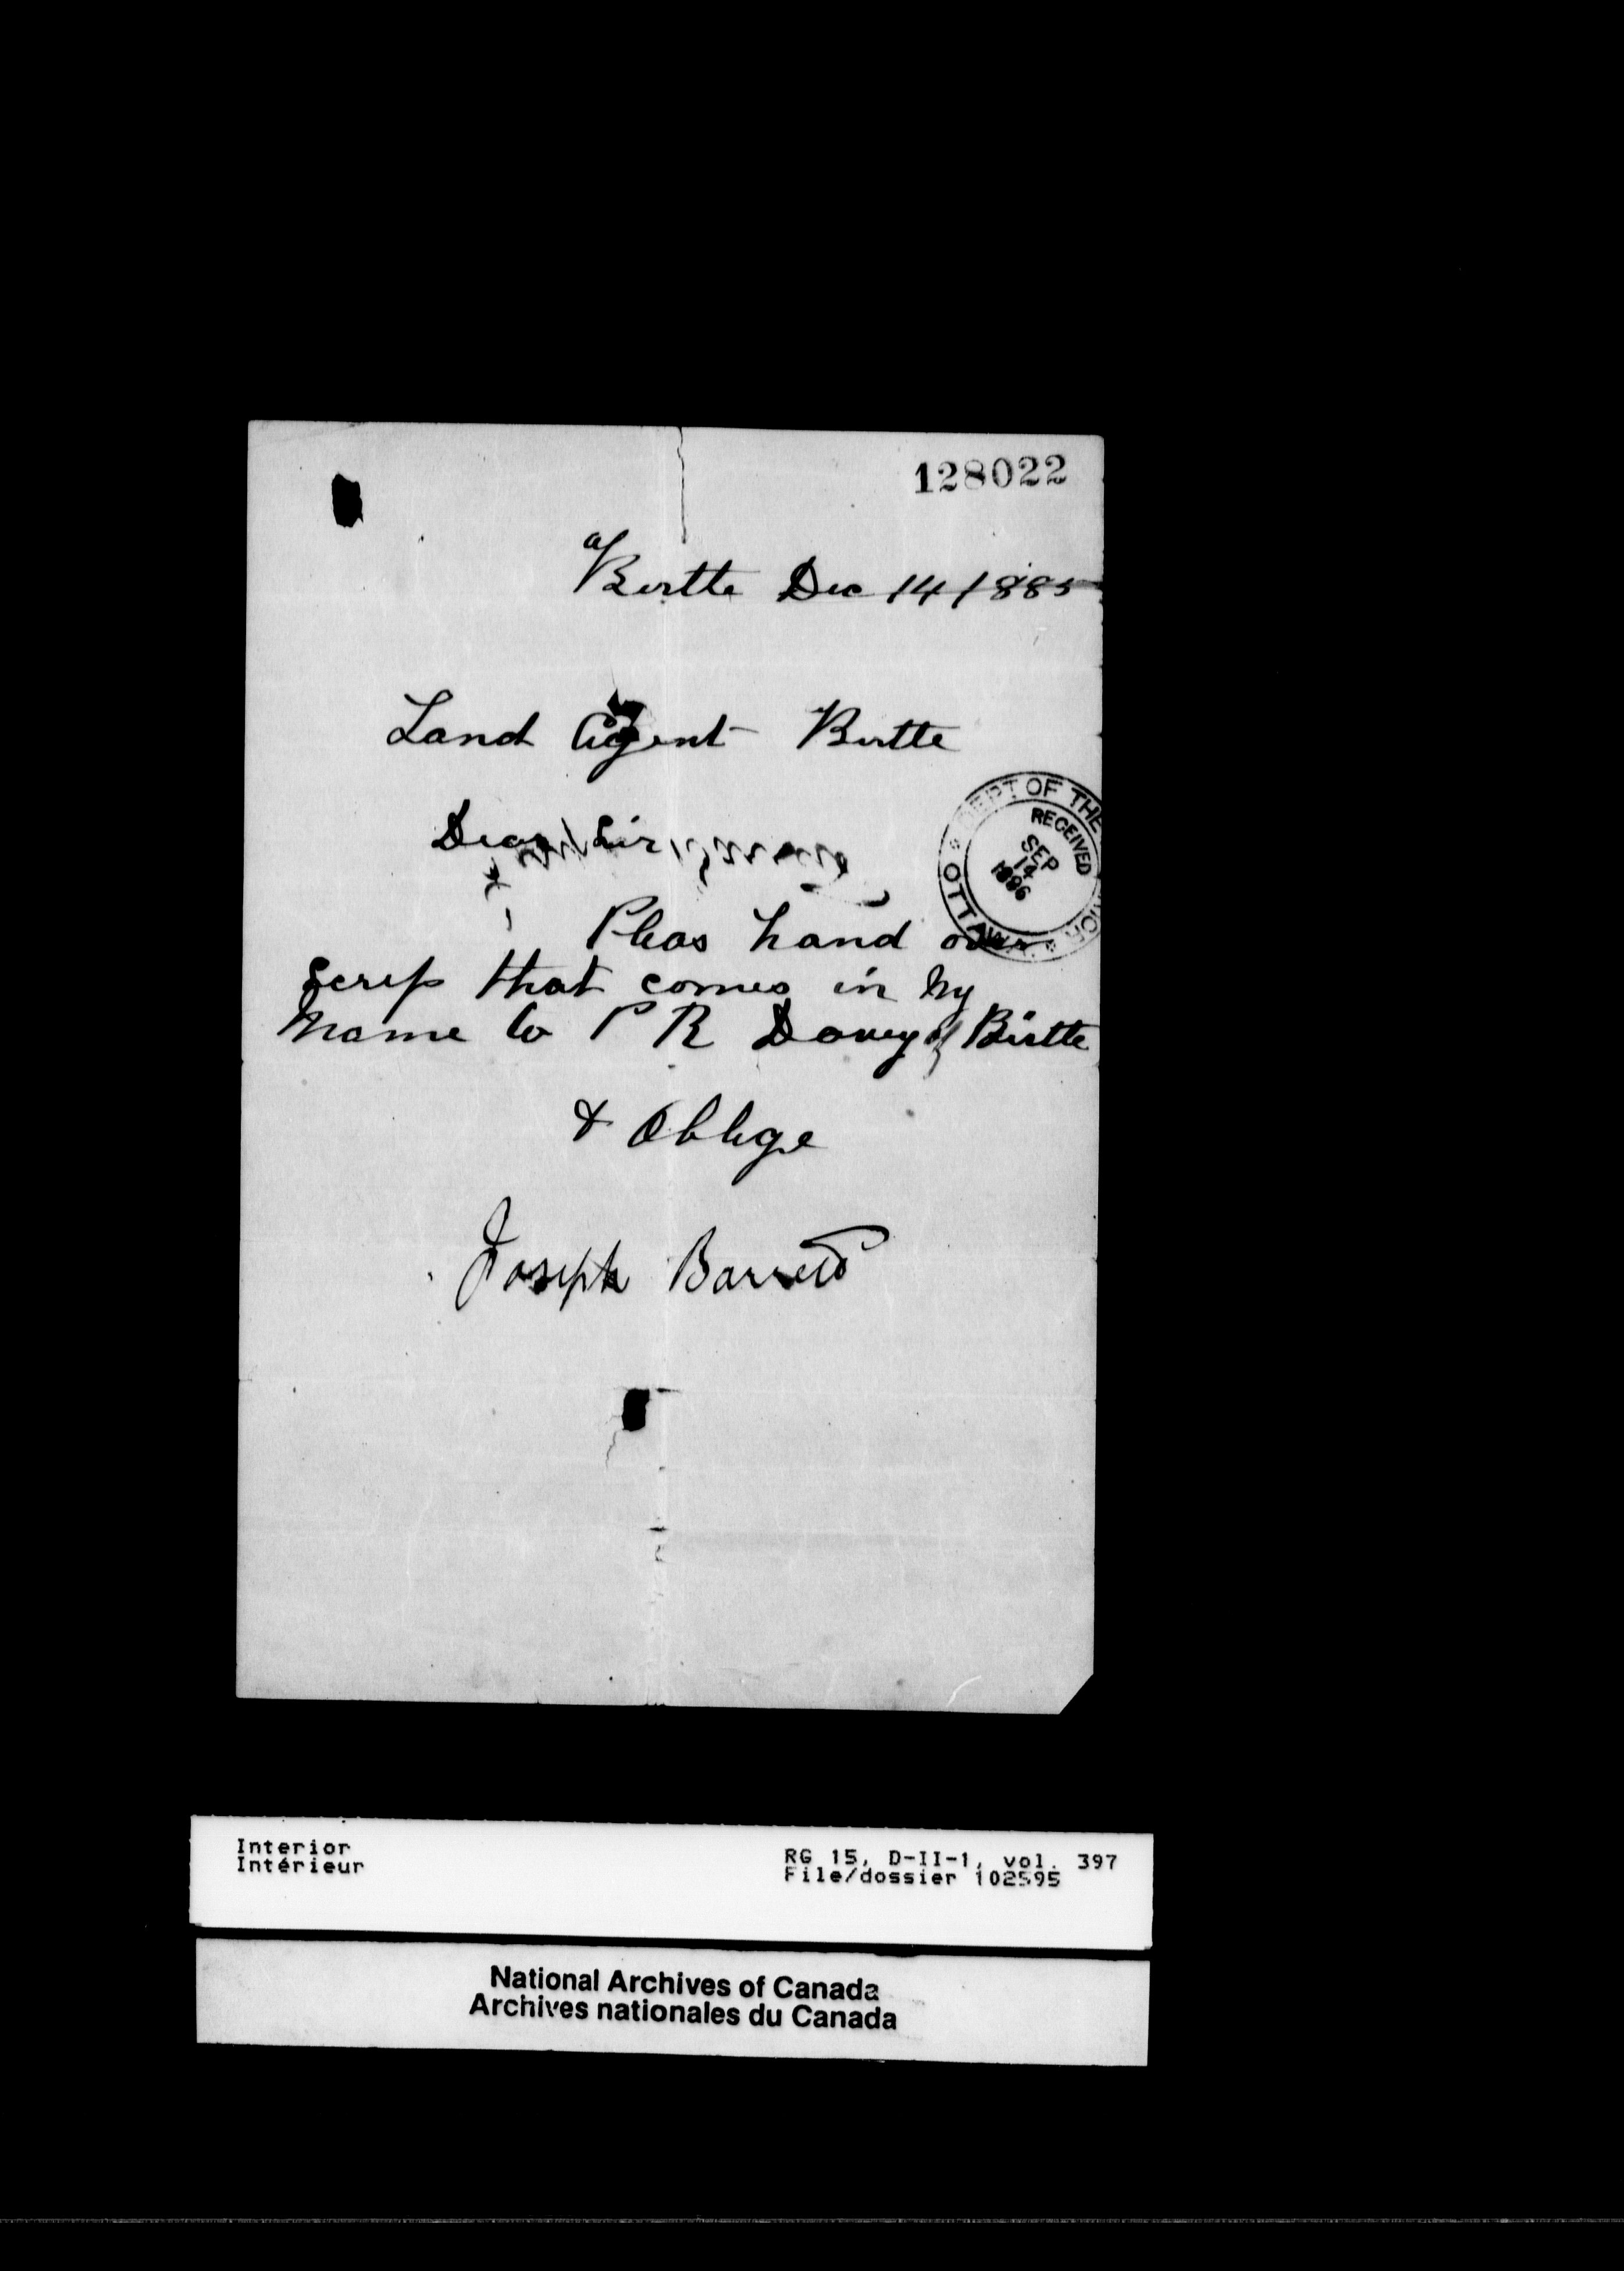 128022
Birtle Dec 14 1885
Land Agent Birtle
Dear Sir
DEPT OF THE INTERIOR
OTTAWA
RECEIVED
SEP
14
1886
Pleas hand over
Scrip that comes in my
name to P R Davey of Birtle
& Oblige
Joseph Barrett
Interior
Intérieur
RG 15, D-II-1, vol. 397
File/dossier 102595
National Archives of Canada
Archives nationales du Canada